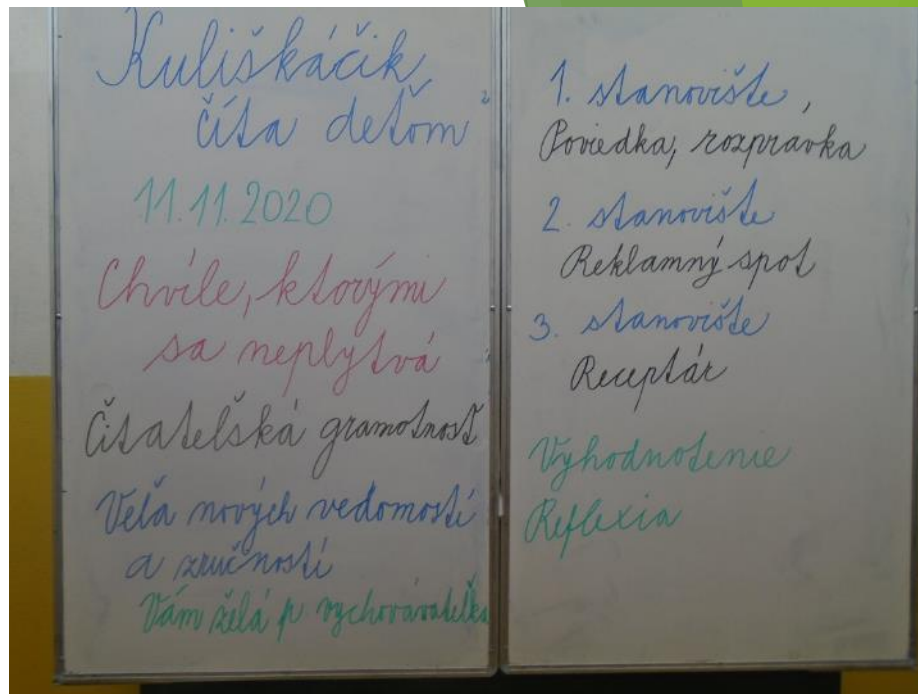 Kuliškáčik
číta deťom"
11.11.2020
Chvíle, ktorými
sa neplytvá
Čitateľská gramotnosť
Veľa nových vedomostí
a zručností
Vám želá p vychovávateľka
1. stanovište,
Poviedka, rozprávka
2. stanovište
Reklamný spot
3. stanovište
Receptár
Vyhodnotenie
Reflexia